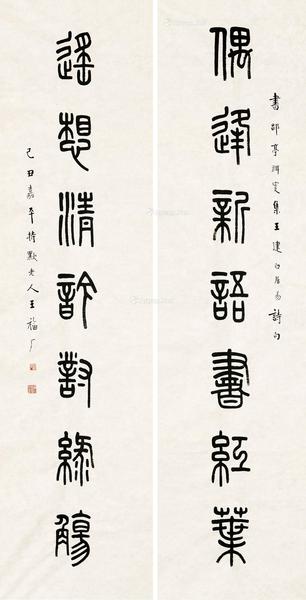 書郘亭眲叟集王建白居易詩句
偶逢新語書紅葉
遙想清訡對綠觴
己丑嘉平持默老人王福厂